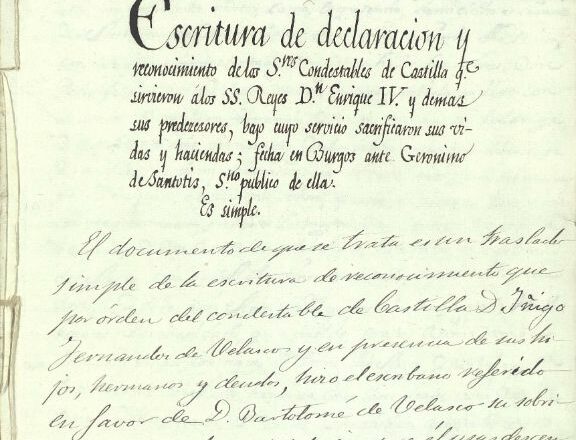 Escritura de declaracion y
reconocimiento de los S.res Condestables de Castilla q.e
sirvieron á los SS. Reyes D.n Enrique IV. y demas
sus predezesores, bajo cuyo servicio sacrificaron sus vi-
das y haciendas; fecha en Burgos ante Geronimo
de Santotis, S.no publico de ella.
Es simple.
El documento de que se trata es un traslado
simple de la escritura de reconocimiento que
por órden del condestable de Castilla D. Iñigo
Fernandez de Velasco y en presencia de sus hi-
jos, hermanos y deudos, hizo el escribano referido
en favor de D. Bartolomé de Velasco su sobri-